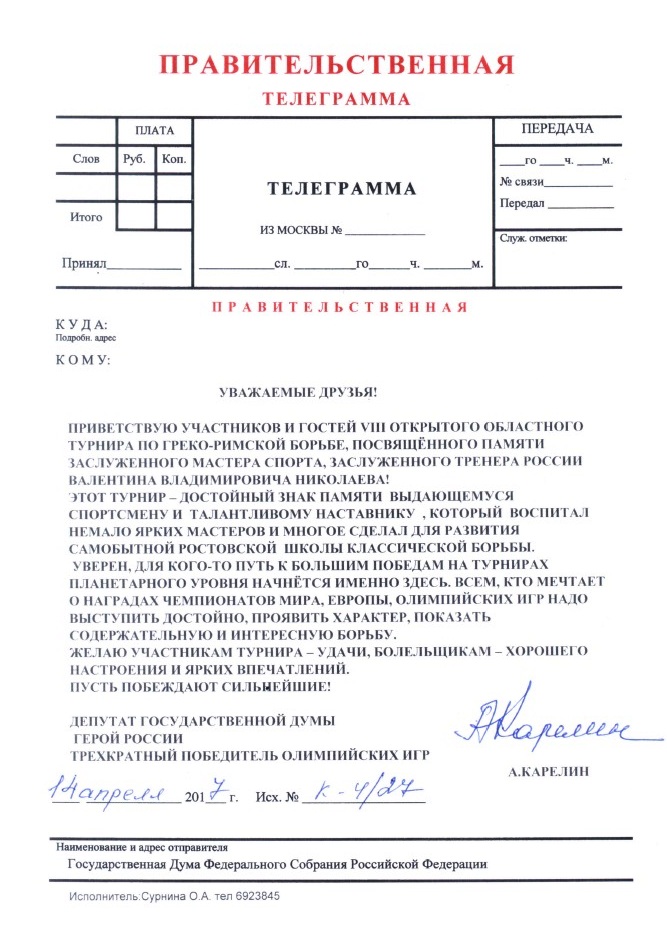 ПРАВИТЕЛЬСТВЕННАЯ
ТЕЛЕГРАММА
ПЛАТА
Слов Руб. Коп.
Итого
Принял____________
ТЕЛЕГРАММА
ИЗ МОСКВЫ № ____________
____________сл. __________го______ч. _______м.
ПЕРЕДАЧА
____го ____ч. ____м.
№ связи___________
Передал ___________
Служ. отметки:
ПРАВИТЕЛЬСТВЕННАЯ
КУДА:
Подробн. адрес
КОМУ:
УВАЖАЕМЫЕ ДРУЗЬЯ!
ПРИВЕТСТВУЮ УЧАСТНИКОВ И ГОСТЕЙ VIII ОТКРЫТОГО ОБЛАСТНОГО
ТУРНИРА ПО ГРЕКО-РИМСКОЙ БОРЬБЕ, ПОСВЯЩЁННОГО ПАМЯТИ
ЗАСЛУЖЕННОГО МАСТЕРА СПОРТА, ЗАСЛУЖЕННОГО ТРЕНЕРА РОССИИ
ВАЛЕНТИНА ВЛАДИМИРОВИЧА НИКОЛАЕВА!
ЭТОТ ТУРНИР – ДОСТОЙНЫЙ ЗНАК ПАМЯТИ ВЫДАЮЩЕМУСЯ
СПОРТСМЕНУ И ТАЛАНТЛИВОМУ НАСТАВНИКУ , КОТОРЫЙ ВОСПИТАЛ
НЕМАЛО ЯРКИХ МАСТЕРОВ И МНОГОЕ СДЕЛАЛ ДЛЯ РАЗВИТИЯ
САМОБЫТНОЙ РОСТОВСКОЙ ШКОЛЫ КЛАССИЧЕСКОЙ БОРЬБЫ.
УВЕРЕН, ДЛЯ КОГО-ТО ПУТЬ К БОЛЬШИМ ПОБЕДАМ НА ТУРНИРАХ
ПЛАНЕТАРНОГО УРОВНЯ НАЧНЁТСЯ ИМЕННО ЗДЕСЬ. ВСЕМ, КТО МЕЧТАЕТ
О НАГРАДАХ ЧЕМПИОНАТОВ МИРА, ЕВРОПЫ, ОЛИМПИЙСКИХ ИГР НАДО
ВЫСТУПИТЬ ДОСТОЙНО, ПРОЯВИТЬ ХАРАКТЕР, ПОКАЗАТЬ
СОДЕРЖАТЕЛЬНУЮ И ИНТЕРЕСНУЮ БОРЬБУ.
ЖЕЛАЮ УЧАСТНИКАМ ТУРНИРА – УДАЧИ, БОЛЕЛЬЩИКАМ – ХОРОШЕГО
НАСТРОЕНИЯ И ЯРКИХ ВПЕЧАТЛЕНИЙ.
ПУСТЬ ПОБЕЖДАЮТ СИЛЬНЕЙШИЕ!
ДЕПУТАТ ГОСУДАРСТВЕННОЙ ДУМЫ
ГЕРОЙ РОССИИ
ТРЕХКРАТНЫЙ ПОБЕДИТЕЛЬ ОЛИМПИЙСКИХ ИГР
А Карелин
А.КАРЕЛИН
14 апреля 2017 г. Исх. № К-4/27
Наименование и адрес отправителя
Государственная Дума Федерального Собрания Российской Федерации
Исполнитель:Сурнина О.А. тел 6923845